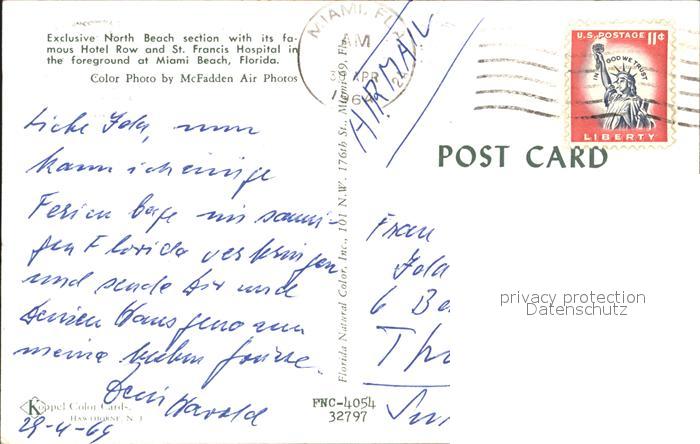 Exclusive North Beach section with its fa-
mous Hotel Row and St. Francis Hospital in
the foreground at Miami Beach, Florida.
Color Photo by McFadden Air Photos
MIAMI, FL
AM
APR
AIRMAIL
U.S. POSTAGE 11¢
IN GOD WE TRUST
LIBERTY
POST CARD
Liebe Jola, nun
kann ich einige
Ferien tage im sonni-
gen Florida verbringen
und sende Dir und
Deinen Hausgenossen
meine lieben Grüsse.
Dein Harold
29-4-64
Florida Natural Color, Inc., 101 N.W. 176th St. Miami 69, Fla.
Frau
Jola
6 Be
privacy protection
Datenschutz
Koppel Color Cards
HAWTHORNE, N. J.
FNC-4054
32797